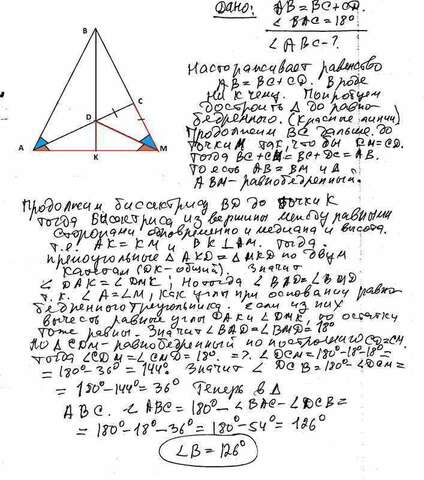 B
D
C
A
K
M
Дано: AB = BC + CD.
∠BAC = 18°
∠ABC - ?
Настораживает равенство
AB = BC + CD. Вроде
ни к чему. Попробуем
достроить Δ до равно-
бедренного. (Красные линии)
Продолжим BC дальше до
точки M так, что бы CM = CD.
Тогда BC + CM = BC + DC = AB.
То есть AB = BM и Δ
ABM - равнобедренный.
Продолжим биссектрису BD до точки K
Тогда биссектриса из вершины между равными
сторонами одновременно и медиана и высота.
т.е. AK = KM и BK ⊥ AM. Тогда
прямоугольные Δ AKD = Δ MKD по двум
катетам (DK - общий). Значит
∠DAK = ∠DMK; Но тогда ∠BAD = ∠BMD
т.к. ∠A = ∠M, как углы при основании равно-
бедренного треугольника. Если из них
вычесть равные углы DAK и ∠DMK, то остатки
тоже равны. Значит ∠BAD = ∠BMD = 18°
Но Δ CDM - равнобедренный по построению CD = CM.
Тогда ∠CDM = ∠CMD = 18°. => ∠DCM = 180° - 18° - 18° =
= 180° - 36° = 144°. Значит ∠DCB = 180° - ∠DCM =
= 180° - 144° = 36° Теперь в Δ
ABC. ∠ABC = 180° - ∠BAC - ∠DCB =
= 180° - 18° - 36° = 180° - 54° = 126°
∠B = 126°